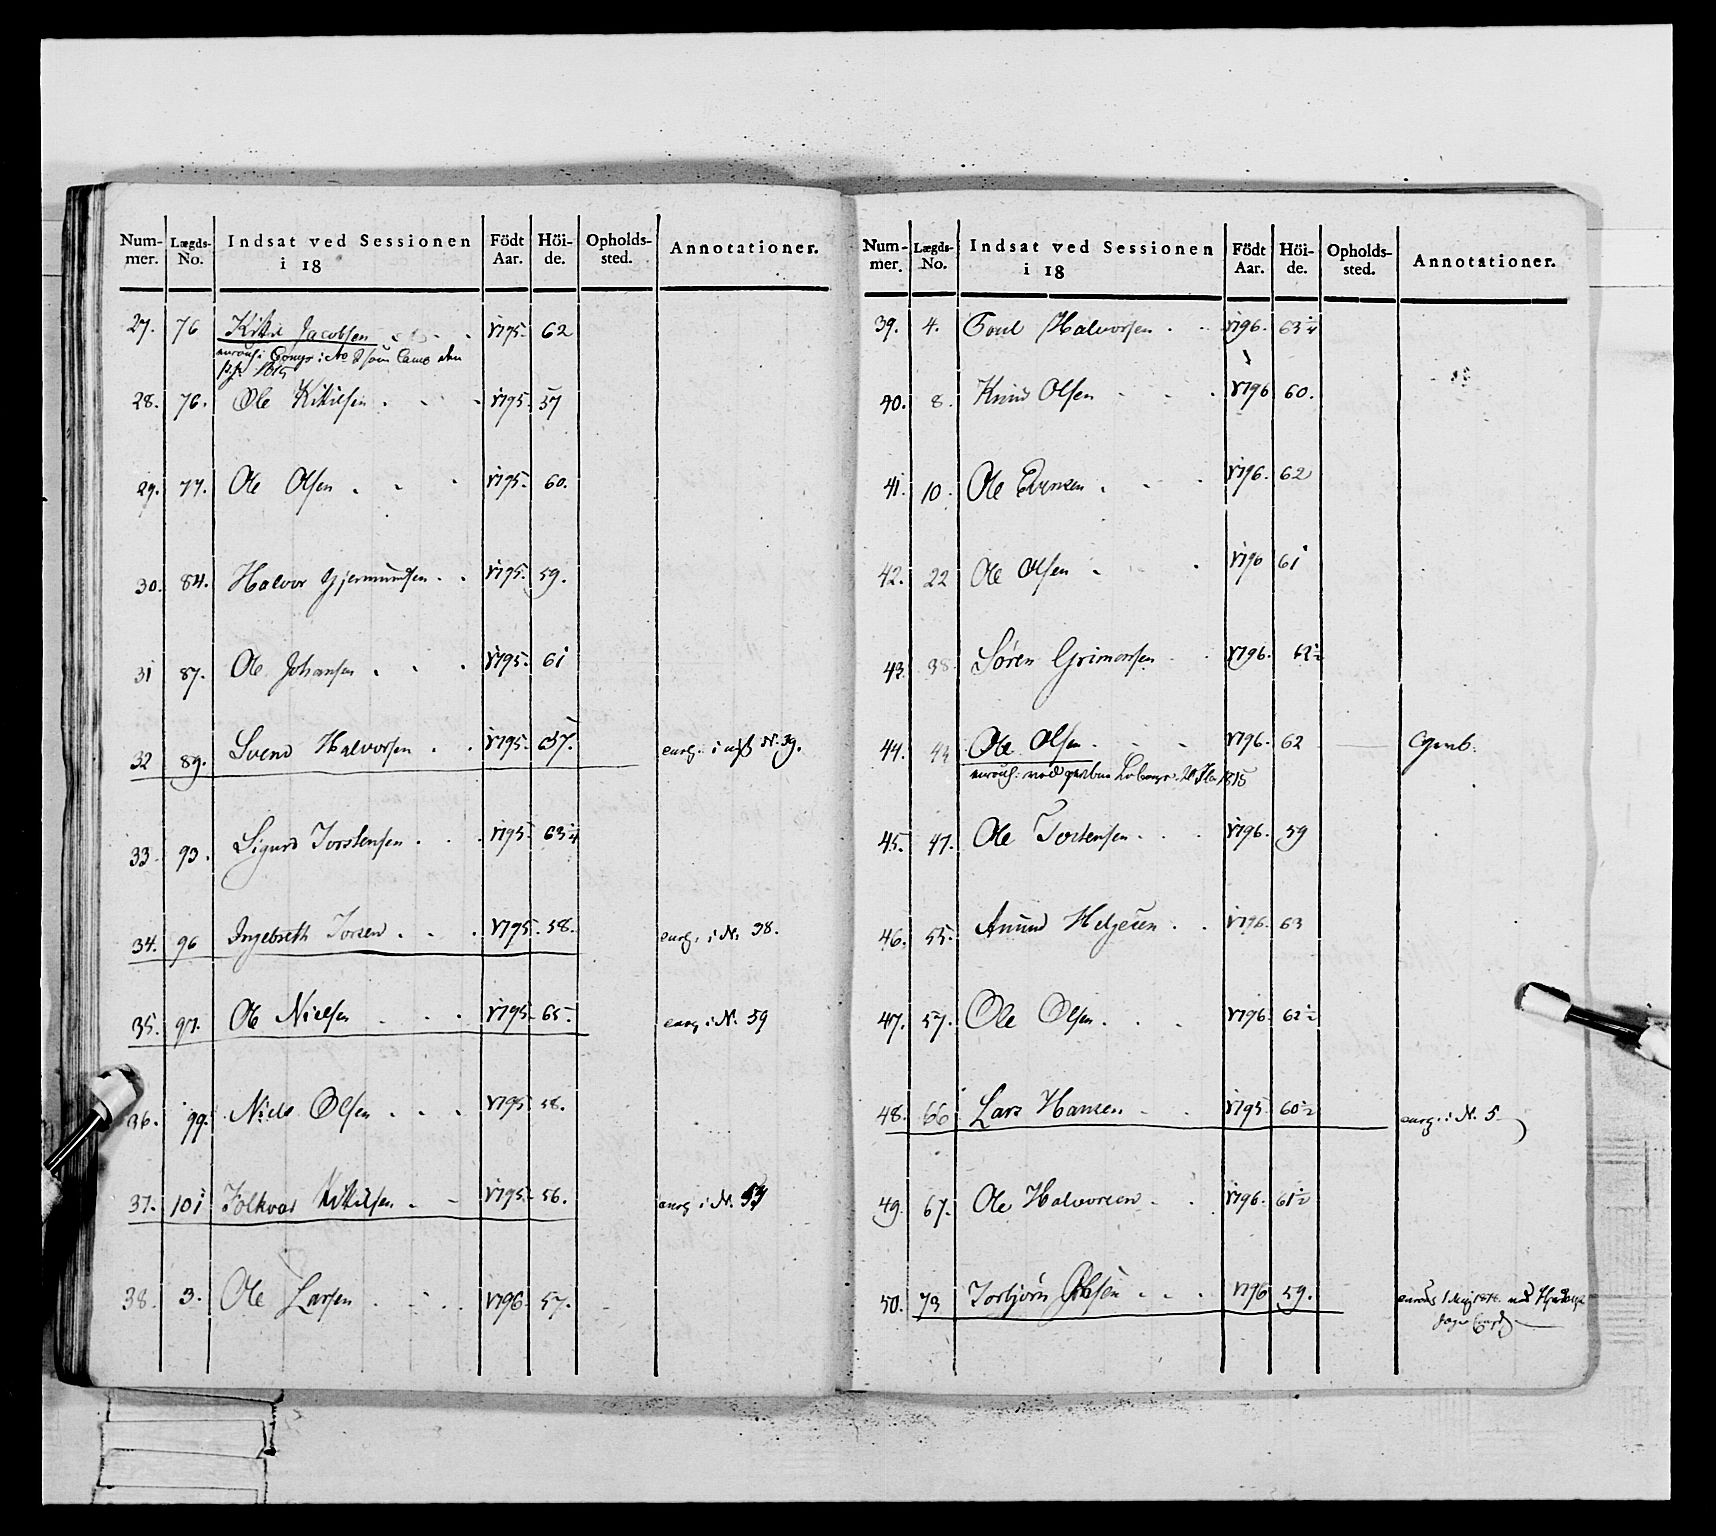 Num-mer. Lægds-No. Indsat ved Sessionen i 18 Födt Aar. Höi-de. Opholds-sted. Annotationer.
27. 76 Kittil Jacobsen 1795. 62
28. 76. Ole Kittilsen . . . 1795. 57
29. 77. Ole Olsen . . . 1795. 60.
30. 84. Halvor Gjermundsen . . 1795. 59.
31 87. Ole Johansen . . . 1795. 61
32 89. Svend Halvorsen . . 1795. 57. i N. 39.
33. 93. Sigurd Torstensen . . . 1795 63 1/4
34. 96 Ingebreth . . . 1795. 58. i N. 38.
35. 97. Ole Nielsen . . . 1795. 65. i N. 59
36. 99. Niels Olsen . . . 1795 58.
37. 101 Folkvar Kittilsen . - 1795. 56. i N.
38. 3. Ole Larsen . . . 1796. 57.
Num-mer. Lægds-No. Indsat ved Sessionen i 18 Födt Aar. Höi-de. Opholds-sted. Annotationer.
39. 4. Poul Halvorsen . . 1796. 63 1/4
40. 8. Knud Olsen . . . 1796 60.
41. 10. Ole Evensen . . . 1796. 62
42. 22 Ole Olsen . . . 1796 61
43. 38. Søren Grimersen . . 1796. 62 1/2
44. Ole Olsen . . . 1796. 62
1815
45. 47. Ole Torstensen . . . 1796. 59
46. 55. Amund Helgesen . . 1796. 63
47. 57. Ole Olsen . . . 1796. 62 1/2
48. 66 Lars Hansen . . 1795. 60 1/2 i N. 5
49. 67. Ole Halvorsen . . 1796. 61 1/2
50. 73 Torbjörn . . . 1796 59. 1 Maj